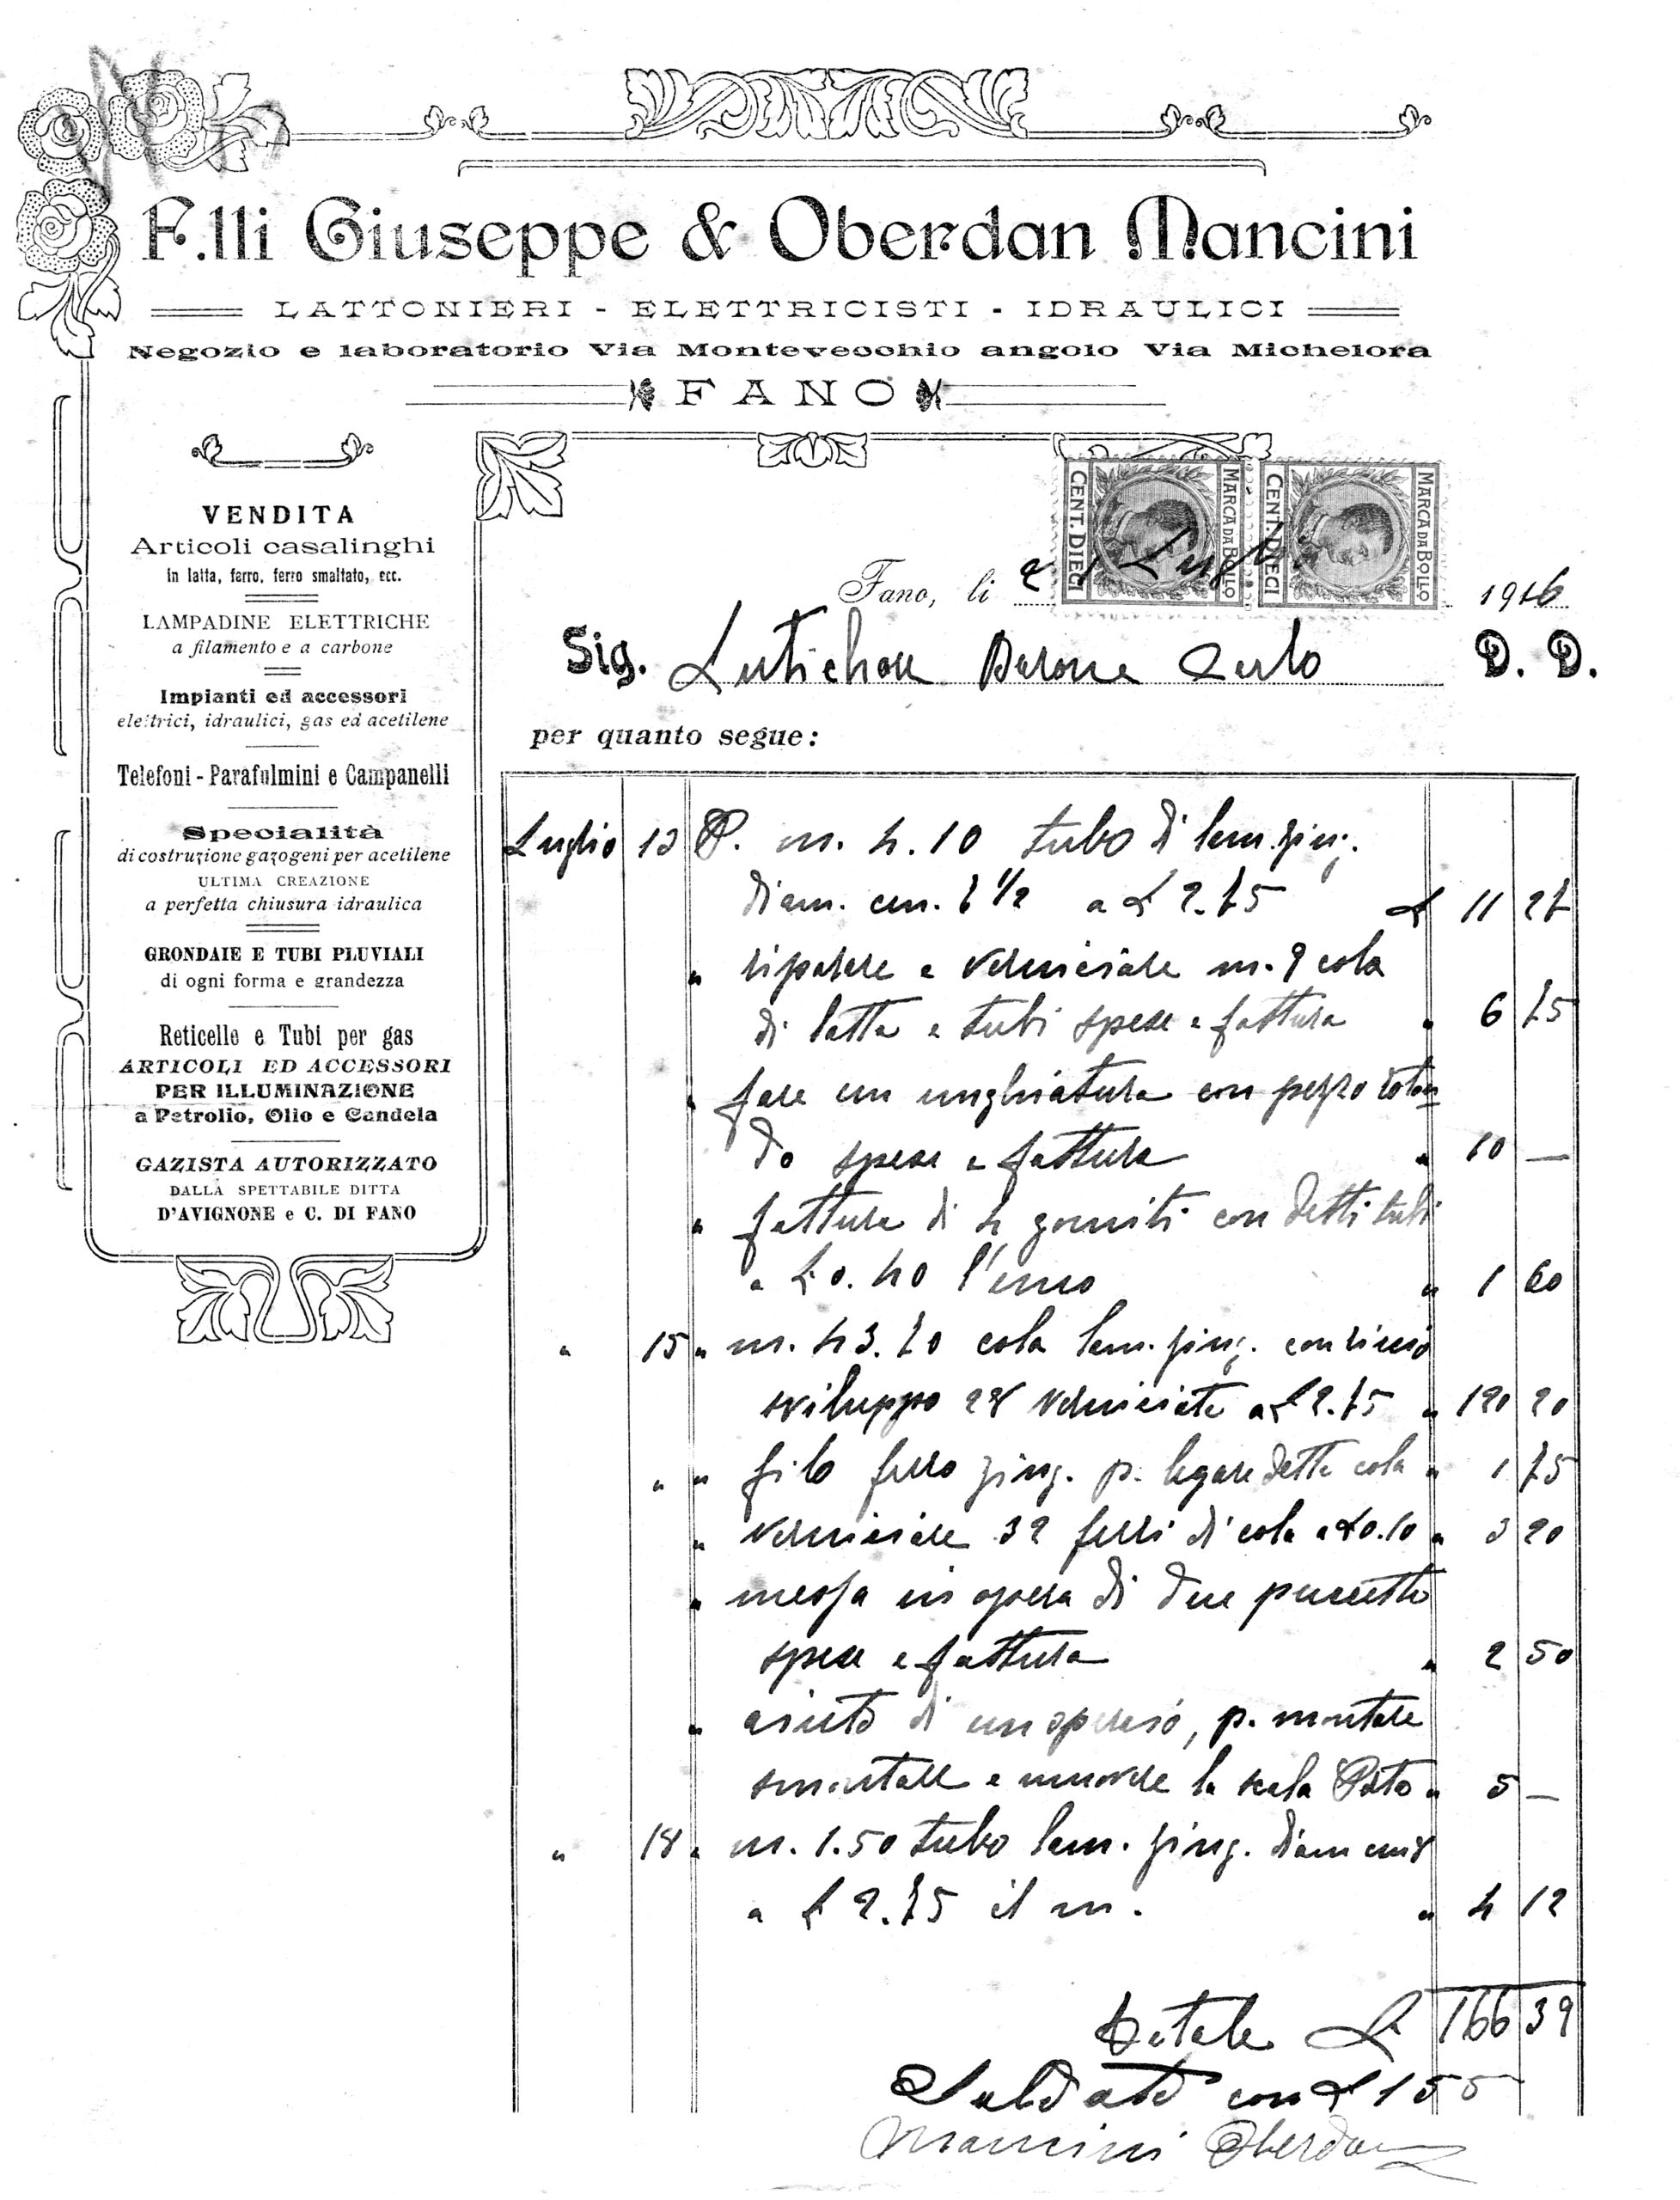 F.lli Giuseppe & Oberdan Mancini
LATTONIERI - ELETTRICISTI - IDRAULICI
Negozio e laboratorio Via Montevecchio angolo Via Michelora
FANO
VENDITA
Articoli casalinghi
in latta, ferro, ferro smaltato, ecc.
LAMPADINE ELETTRICHE
a filamento e a carbone
Impianti ed accessori
elettrici, idraulici, gas ed acetilene
Telefoni - Parafulmini e Campanelli
Specialità
di costruzione gazogeni per acetilene
ULTIMA CREAZIONE
a perfetta chiusura idraulica
GRONDAIE E TUBI PLUVIALI
di ogni forma e grandezza
Reticelle e Tubi per gas
ARTICOLI ED ACCESSORI
PER ILLUMINAZIONE
a Petrolio, Olio e Candela
GAZISTA AUTORIZZATO
DALLA SPETTABILE DITTA
D'AVIGNONE e C. DI FANO
CENT. DIECI MARCA DA BOLLO
CENT. DIECI MARCA DA BOLLO
Fano, li 1916
Sig. Barone Carlo D. D.
per quanto segue:
Luglio 13 P. m. 4.10 tubo di lam. zing.
diam. cm. 7 1/2 a £ 2.75 £ 11 27
" riparare e verniciare m. 9 cola
di latta e tubi spese e fattura " 6 75
" fare un unghiatura con pezzo roton
do spese e fattura " 10 —
" fattura di 4 gomiti con detti tubi
a £ 0.40 l'uno " 1 60
" 15 " m. 43.70 cola lam. zing. con riccio
sviluppo 28 verniciata a £ 2.75 " 120 20
" " filo ferro zing. p. legare dette cola " 1 75
" verniciare 32 ferri di cola a £ 0.10 " 3 20
" messa in opera di due
spese e fattura " 2 50
" aiuto di un operaio, p. montare
smontare e muovere la scala Porto " 5 —
" 18 " m. 1.50 tubo lam. zing. diam cm 8
a £ 2.75 il m. " 4 12
Totale £ 166 39
Saldato con £ 155
Mancini Oberdan